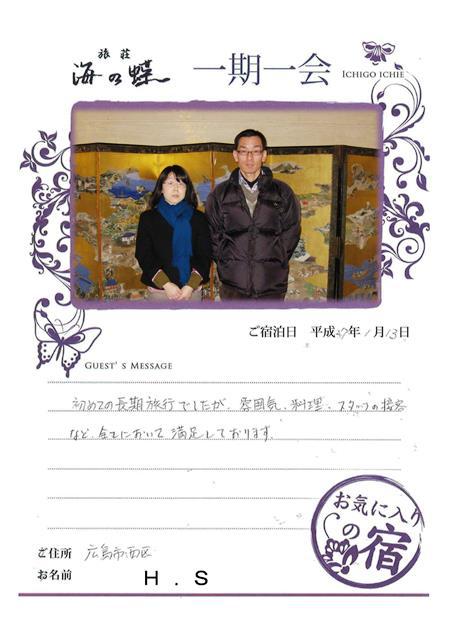 旅荘
海の蝶
一期一会
ICHIGO ICHIE
ご宿泊日 平成27年1月13日
GUEST'S MESSAGE
初めての長期旅行でしたが、雰囲気、料理、スタッフの接客
など、全てにおいて満足しております。
お気に入り
の宿
ご住所 広島市西区
お名前 H.S